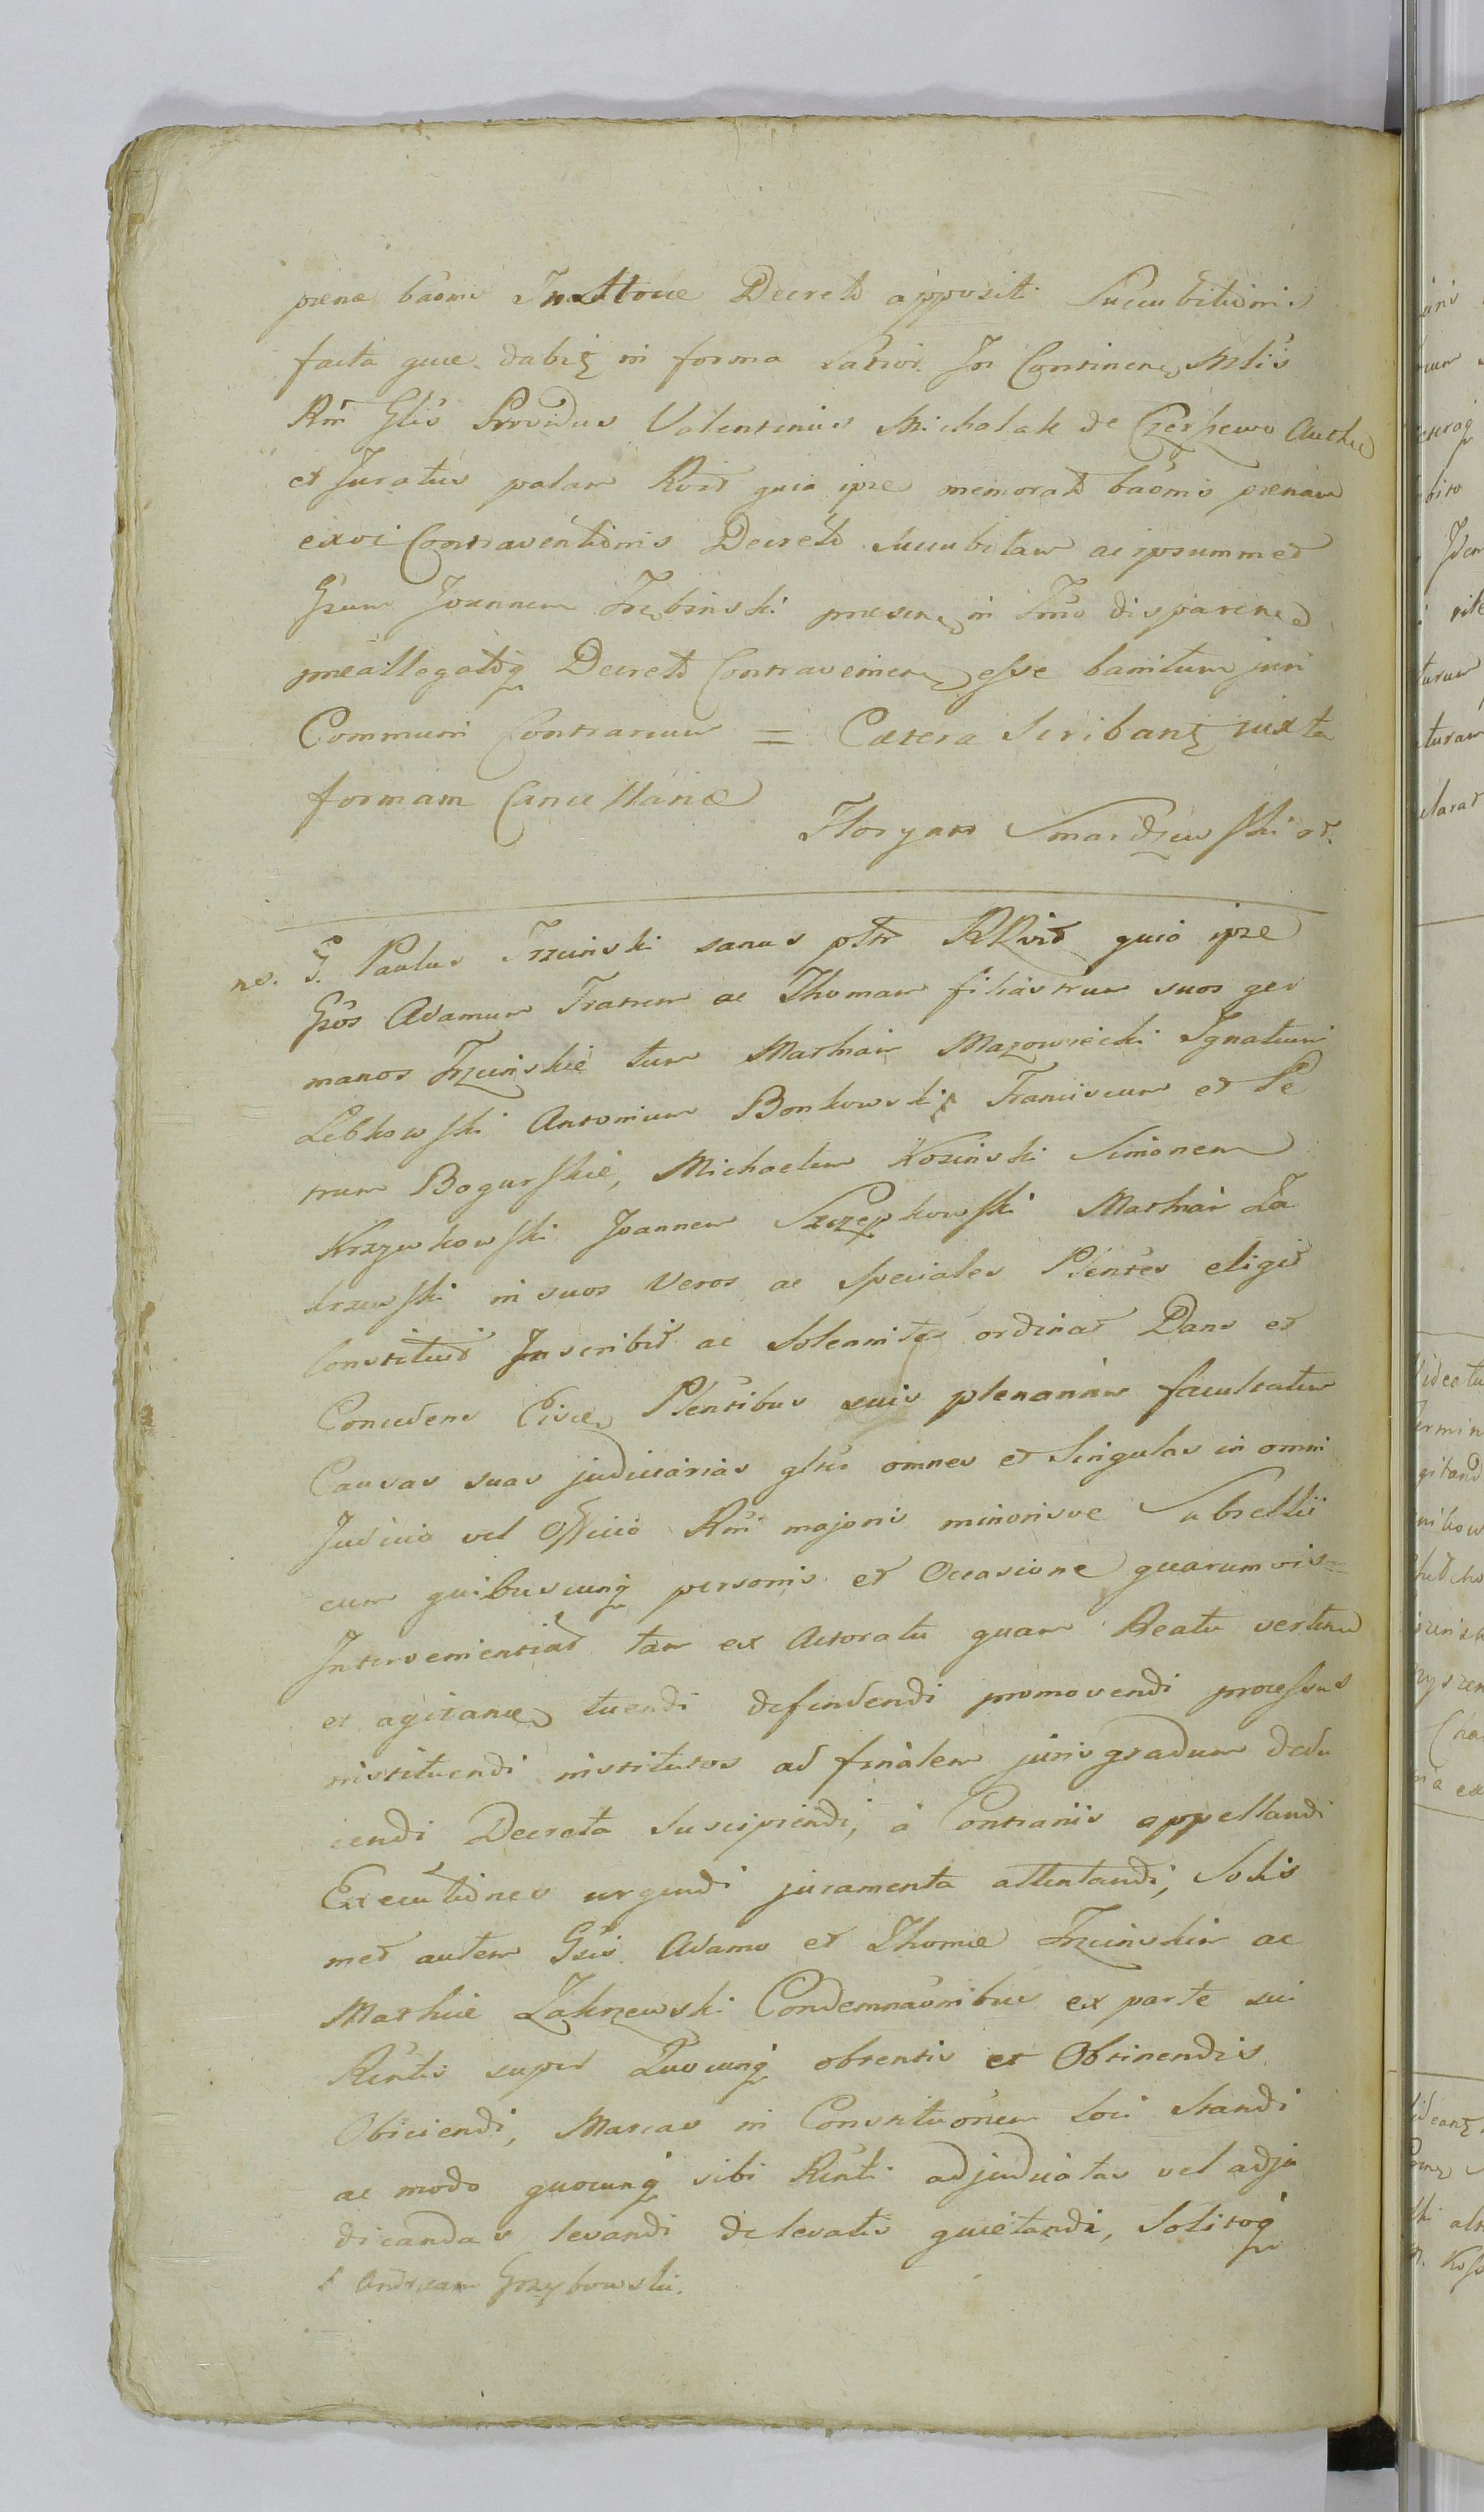 pœnæ baõni Decreto appositi Succubitiõnis
facta quæ dabiť in forma In Continen̄ Mtis
Rm̄ Glis Providus Valentinus Michalak de
et Juratus palam Rvit quia ipse memorato baõnis pœnam
exvi Contraventiõnis Decreto succubitam ac ipsummet
Gsum Joannem Trębinski præsen̄ in Tmo disparen̄
præallegatoq Decreto Contravenien̄ esse banitum juri
Communi Contrarium = Cætera Scribanť juxta
formam Cancellariæ
Floryan Smardzewski
ns. G. Paulus Trzcinski sanus ptr RRvit quia ipse
Gsos Adamum Fratrem ac Thomam filiastrum suos ger
manos Trzcinskie tum Mathiam Mazowiecki Ignatium
Lebkowski Antonium Bonkowski ⸗ Franciscum et Pe
trum Bogurskie, Michaelem Kozinski Simonem
Krzywkowski Joannem Szczepkowski Mathiam Za
krzewski in suos Veros ac speciales Plentes eligit
Constituit Inscribit ac Solemniter ordinat Dans et
Concedens Eisdem Plentibus suis plenariam facultatem
Causas suas judiciarias gltr omnes et Singulas in omni
Judicio vel Officio Rm majoris minorisve Subsellii
cum quibuscunq personis et Occasione quarumvis
Intervenientiar tam ex Actoratu quam Reatu verten
et agitan tuendi defendendi promovendi processus
instituendi institutos ad finalem juris gradum dedu
cendi Decreta Suscipiendi, a Contrariis appellandi
Executiones urgendi juramenta attentandi, Solis
met autem Gsis Adamo et Thomæ Trzcinskim ac
Mathiæ Zakrzewski Condemnaõnibus ex parte sui
Rentis super Quocunq obtentis et Obtinendis
Obiciendi, Marcas in Constituõnem loci standi
ac modo quocunq sibi Renti adjudicatas vel adju
dicandas levandi de levatis quietandi, Solitoq
⸗ Andream Grzybowski.